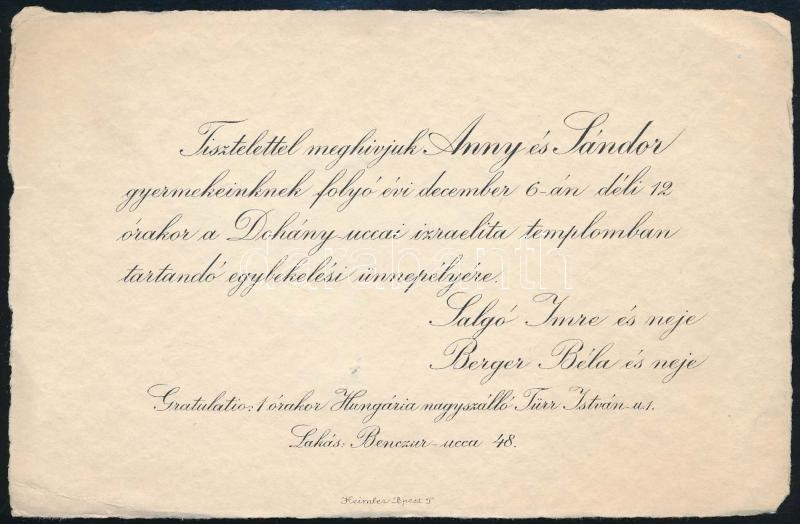 Tisztelettel meghivjuk Anny és Sándor
gyermekeinknek folyó évi december 6-án déli 12
órakor a Dohány-uccai izraelita templomban
tartandó egybekelési ünnepélyére.
Salgó Imre és neje
Berger Béla és neje
Gratulatio: 1 órakor Hungária nagyszálló Türr István-u. 1.
Lakás: Benczur-ucca 48.
Heimler Bpest